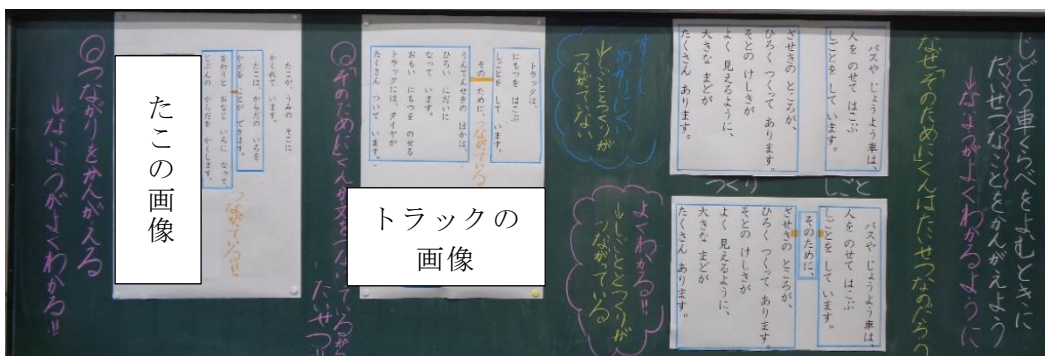 じどう車くらべをよむときに
だいせつなことをかんがえよう
→ないようがよくわかるように
なぜ「そのために」くんはたいせつなのだろう
バスや じょうよう車は、
人を のせて はこぶ
しごとを して います。
ざせきの ところが、
ひろく つくって あります。
そとの けしきが
よく 見えるように、
大きな まどが
たくさん あります。
しごと
つくり
バスや じょうよう車は、
人を のせて はこぶ
しごとを して います。
そのために、
ざせきの ところが、
ひろく つくって あります。
そとの けしきが
よく 見えるように、
大きな まどが
たくさん あります。
すこし
わかりにくい
↓しごととつくりが
つながっていない
よくわかる!!
↓しごととつくりが
つながっている
トラックは、
にもつを はこぶ
しごとを して います。
その ために、
つながっている
うんてんせきの ほかは、
ひろい にだいに
なって います。
おもい にもつを のせる
トラックには、タイヤが
たくさん ついて います。
トラックの
画像
◎「そのために」くんが文をつないでいるから
たいせつ!!
たこが、うみの そこに
かくれて います。
たこは、からだの いろを
かえる ことが できます。
まわりと おなじ いろに なって、
じぶんの からだを かくします。
つながっている!!
たこの画像
◎つながりをかんがえる
→ないようがよくわかる!!